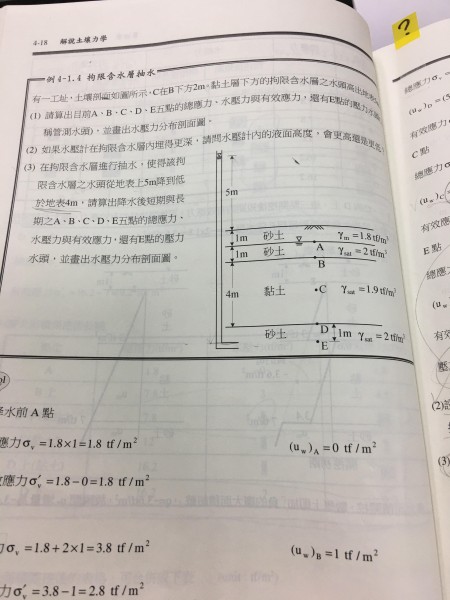 4-18 解說土壤力學
?
例 4-1.4 拘限含水層抽水
有一工址，土壤剖面如圖所示，C在B下方2m。黏土層下方的拘限含水層之水頭高出地表
(1) 請算出目前A、B、C、D、E五點的總應力、水壓力與有效應力，還有E點的壓力水頭
稱管測水頭)，並畫出水壓力分布剖面圖。
(2) 如果水壓計在拘限含水層內埋得更深，請問水壓計內的液面高度，會更高還是更低
(3) 在拘限含水層進行抽水，使得該拘
限含水層之水頭從地表上5m降到低
於地表4m，請算出降水後短期與長
期之A、B、C、D、E五點的總應力、
水壓力與有效應力，還有E點的壓力
水頭，並畫出水壓力分布剖面圖。
5m
1m 砂土 A γm = 1.8 tf/m³
1m 砂土 γsat = 2 tf/m³
B
4m 黏土 C γsat = 1.9 tf/m³
砂土 D 1m γsat = 2 tf/m³
E
sol
水前 A 點
應力 σv = 1.8×1 = 1.8 tf / m²
(uw)A = 0 tf / m²
應力 σ′v = 1.8 − 0 = 1.8 tf / m²
σv = 1.8 + 2×1 = 3.8 tf / m²
(uw)B = 1 tf / m²
力 σ′v = 3.8 − 1 = 2.8 tf / m²
總應力 σv
(uw)D = (5
有效應力
C 點
總應力 σ
(uw)C
有效應力
E 點
總應力
(uw
有效
壓
(2)
(3)